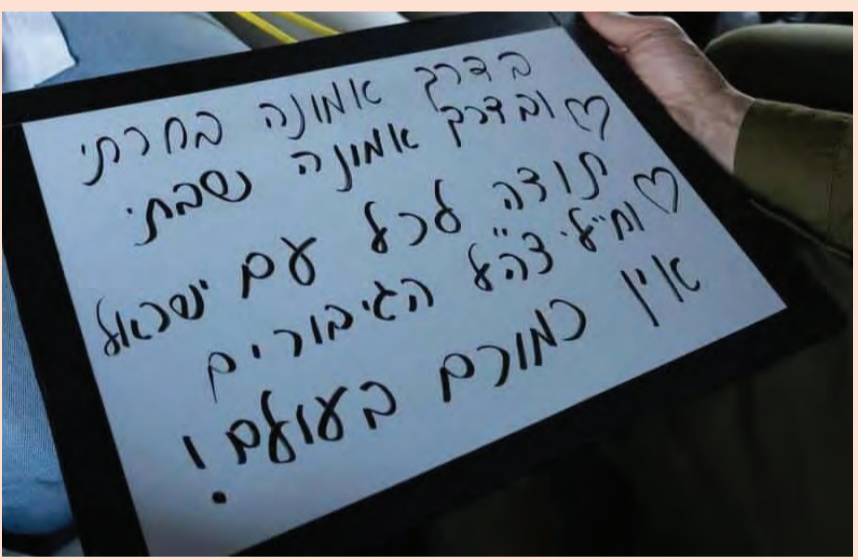 בדרך אמונה בחרתי
ובדרך אמונה שבתי
תודה לכל עם ישראל
וחיילי צה"ל הגיבורים
אין כמוכם בעולם!